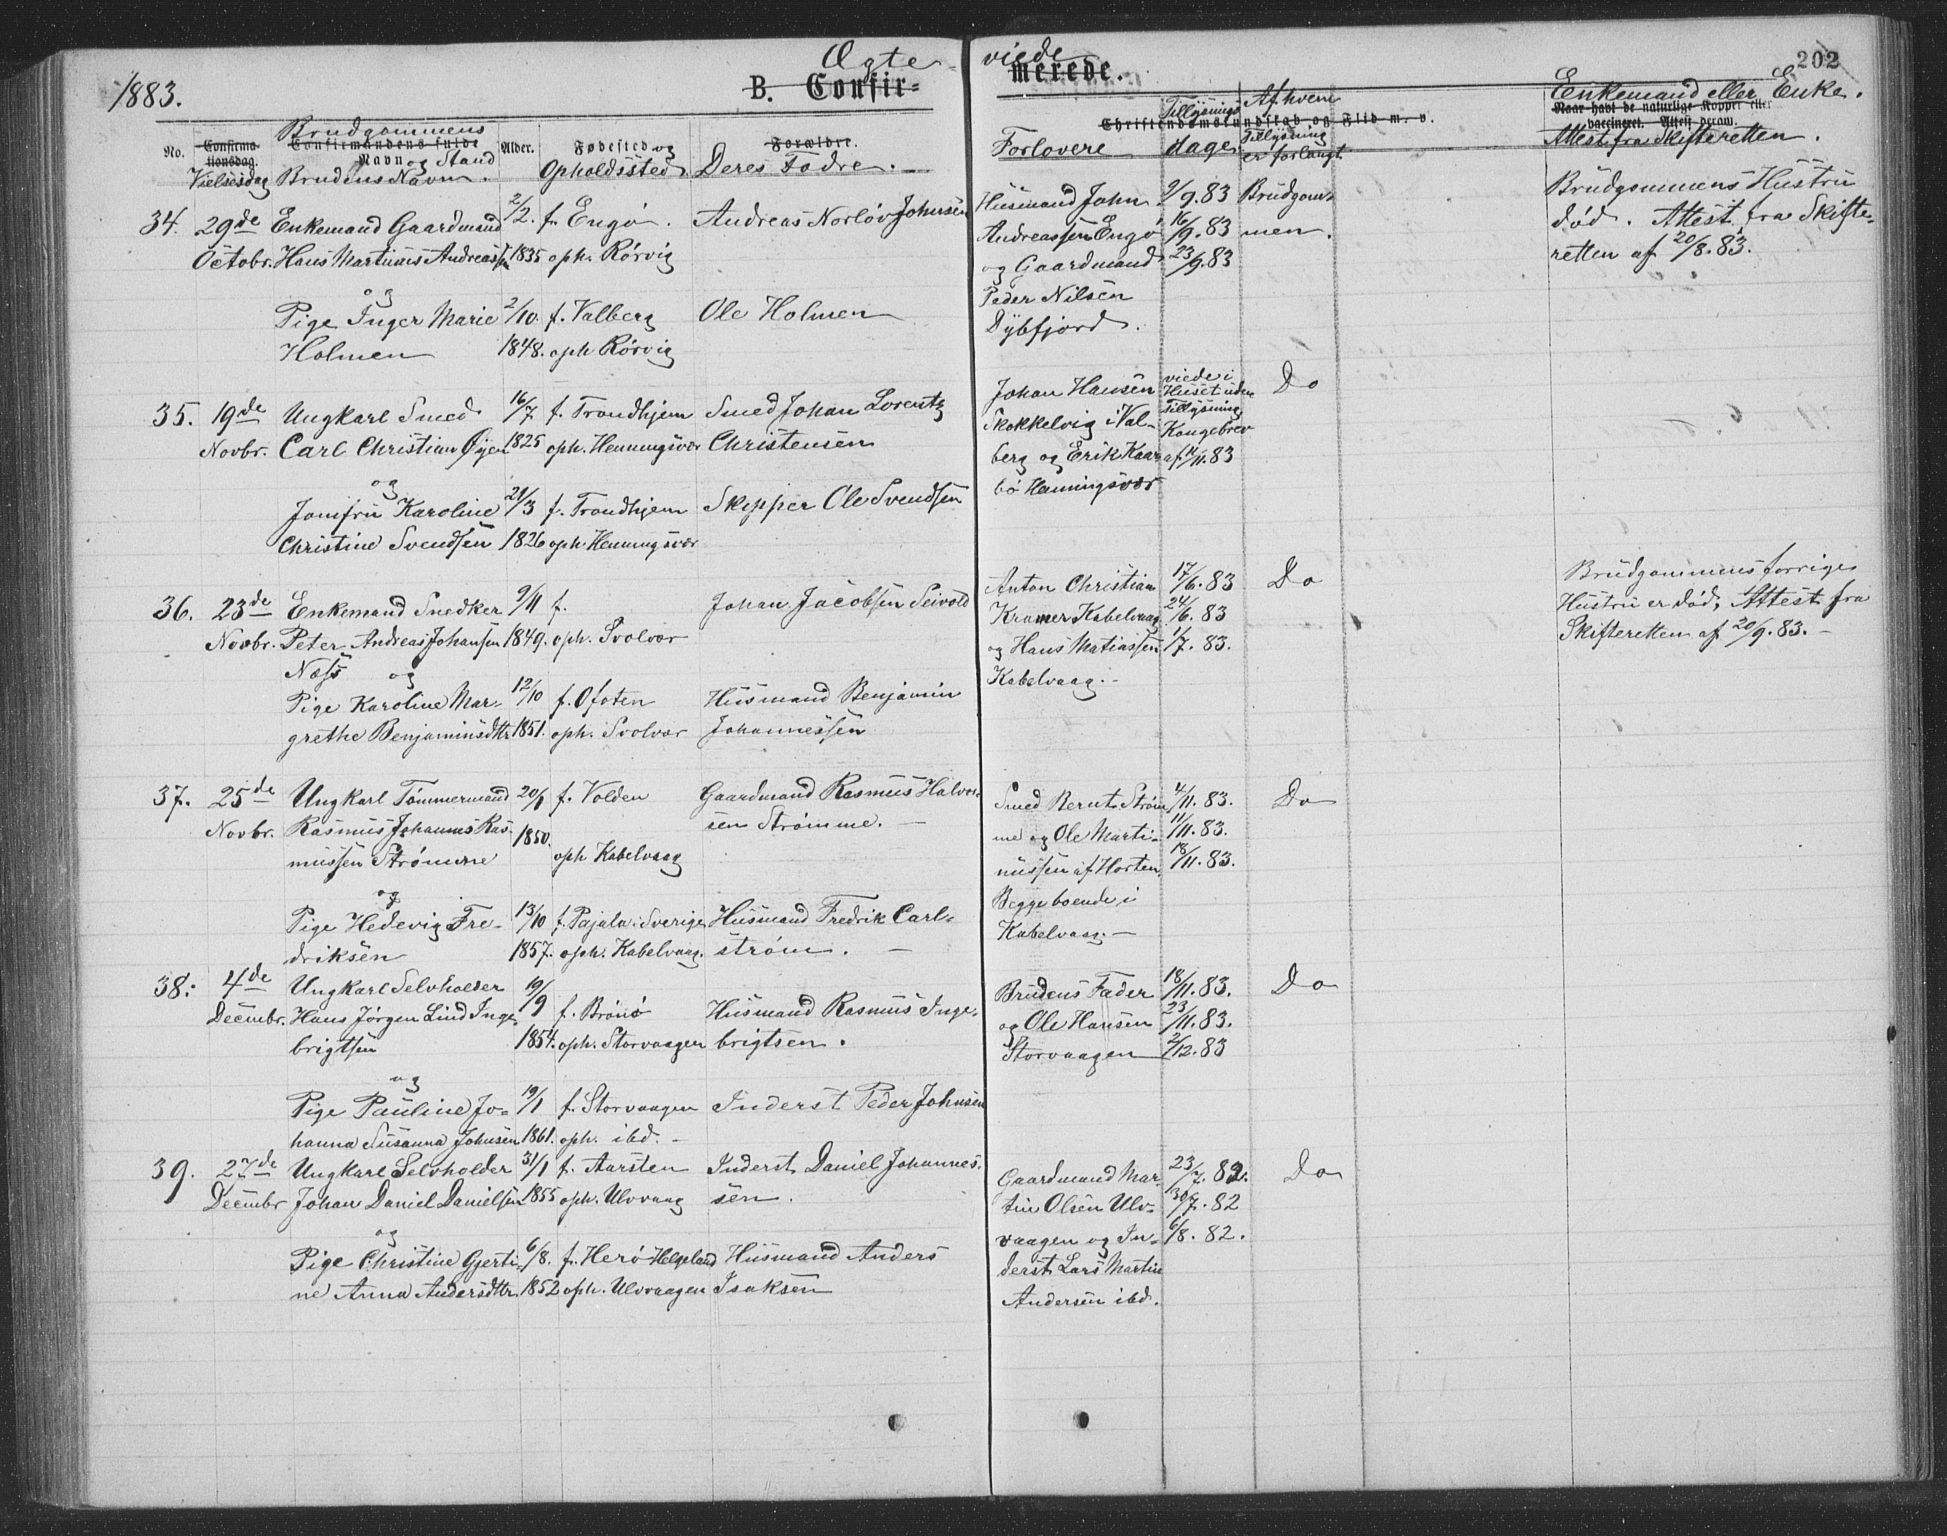 1883.
Ægte viede
B. Confirmerede.
202
No.
Confirmationsdag.
Vielsesdag
Brudgommens
Confirmandens fulde
Navn og Stand
Brudens Navn.
Alder.
Fødested og
Opholdssted
Forældre.
Deres Fædre.
Christendomskundskab og Flid m. v.
Forlovere
Tillysnings
dage
Af hvem
Tillysning
er forlangt
Enkemand eller Enke.
Naar havt de naturlige Kopper eller
vaccineret. Attest derom.
Attest fra Skifteretten.
34.
29de
Octobr.
Enkemand Gaardmand
Hans Martinus Andreassen
og
Pige Inger Marie
Holmen
2/2.
1835
2/10.
1848.
f. Engø.
oph. Rørvig
f. Valberg
oph Rørvig
Andreas Norløv Johnsen
Ole Holmen
Husmand John
Andreassen Engø
og Gaardmand
Peder Nilsen
Dybfjord.
9/9.83
16/9.83
23/9.83
Brudgom-
men.
Brudgommens Hustru
død. Attest fra Skifte-
retten af 20/8.83.
35.
19de
Novbr.
Ungkarl Smed
Carl Christian Øyen
og
Jomfru Karoline
Christine Svendsen
16/7
1825
21/3
1826
f. Trondhjem
oph. Henningsvær
f. Trondhjem
oph Henningsvær
Smed Johan Lorentz
Christensen
Skipper Ole Svendsen
Johan Hansen
Skokkelvig i Val-
berg og Erik Kaar-
bø Henningsvær
viede i
Huset uden
Tillysning
Kongebrev
af 14/11.83
Do
36.
23de
Novbr.
Enkemand Snedker
Peter Andreas Johansen
Næss og
Pige Karoline Mar-
grethe Benjaminsdttr
9/11
1849.
12/10
1851.
f.
oph. Svolvær
f. Ofoten
oph. Svolvær
Johan Jacobsen Seivold
Husmand Benjamin
Johannessen
Anton Christian
Kramer Kabelvaag
og Hans Matiassen
Kabelvaag.
17/6.83
24/6.83
1/7.83.
Do
Brudgommens forrige
Hustru er død, Attest fra
Skifteretten af 20/9.83.
37.
25de
Novbr.
Ungkarl Tømmermand
Rasmus Johannes Ras-
mussen Strømme
og
Pige Hedevig Fre-
driksen
20/1
1850.
13/10
1857.
f. Volden
oph Kabelvaag
f. Pajala i Sverige
oph. Kabelvaag.
Gaardmand Rasmus Halvor-
sen Strømme.
Husmand Fredrik Carl-
strøm.
Smed Bernt Strøm-
me og Ole Marti-
nussen af Horten,
Begge boende i
Kabelvaag.
4/11.83.
11/11.83.
18/11.83.
Do
38.
4de
Decmbr.
Ungkarl Selvholder
Hans Jørgen Lind Inge-
brigtsen
og
Pige Pauline Jo-
hanna Susanna Johnsen
19/9
1854.
19/1
1861.
f. Brønø
oph. Storvaagen
f. Storvaagen
oph. ibd.
Husmand Rasmus Inge-
brigtsen.
Inderst Peder Johnsen
Brudens Fader
og Ole Hansen
Storvaagen
18/11.83.
23/11.83.
2/12.83
Do
39.
27de
Decmbr
Ungkarl Selvholder
Johan Daniel Danielsen
og
Pige Christine Gjerti-
ne Anna Andersdttr.
31/1
1855
6/8.
1852
f. Aarsten
oph. Ulvvaag
f. Herø Helgeland
oph. Ulvvaagen
Inderst Daniel Johannes-
sen.
Husmand Anders
Isaksen
Gaardmand Mar-
tin Olsen Ulv-
vaagen og In-
derst Lars Martin
Andersen ibd.
23/7.82.
30/7.82
6/8.82.
Do